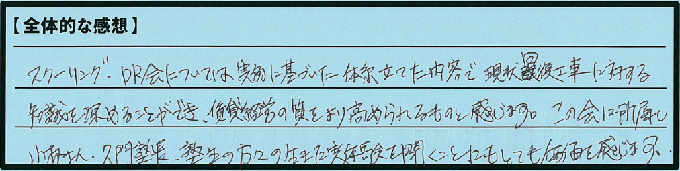 【全体的な感想】
スクーリング・DR会については、実例に基づいた体系立てた内容で現状最後工事に対する
知識を深めることができ、賃貸経営の質をより高められるものと感じます。この会に所属し
小林さん、久門塾長、塾生の方々の生きた実体験を聞くことにもとても価値を感じます。